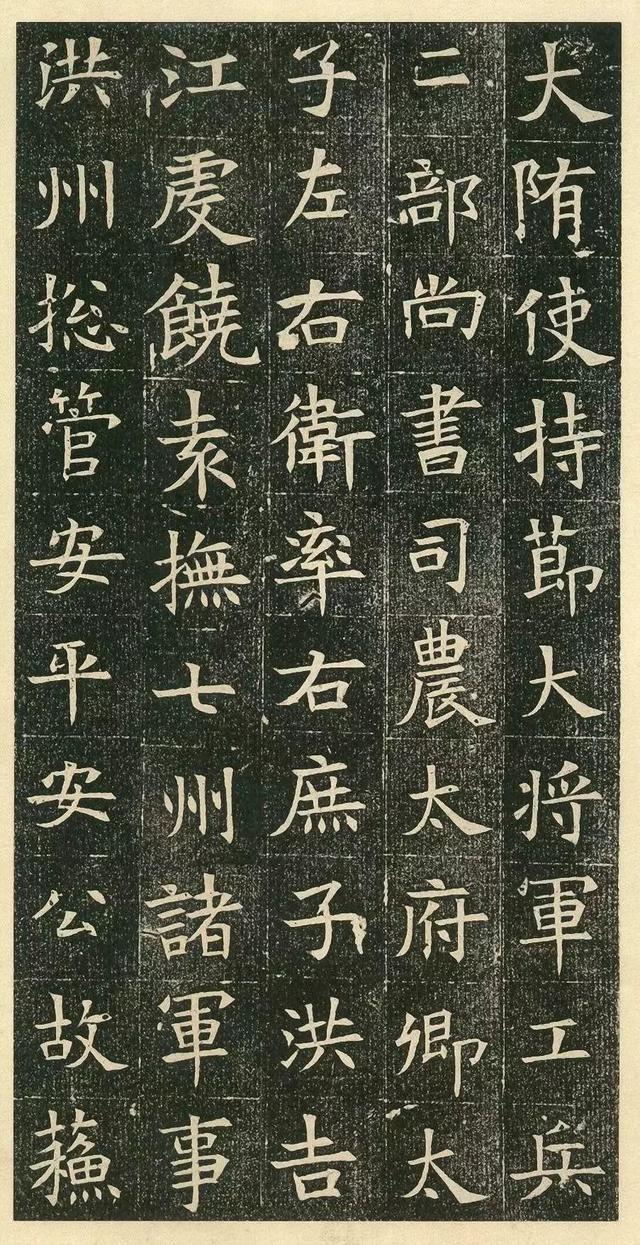 大隋使持節大將軍工兵
二部尚書司農太府卿太
子左右衛率右庶子洪吉
江虔饒袁撫七州諸軍事
洪州捴管安平安公故蘓